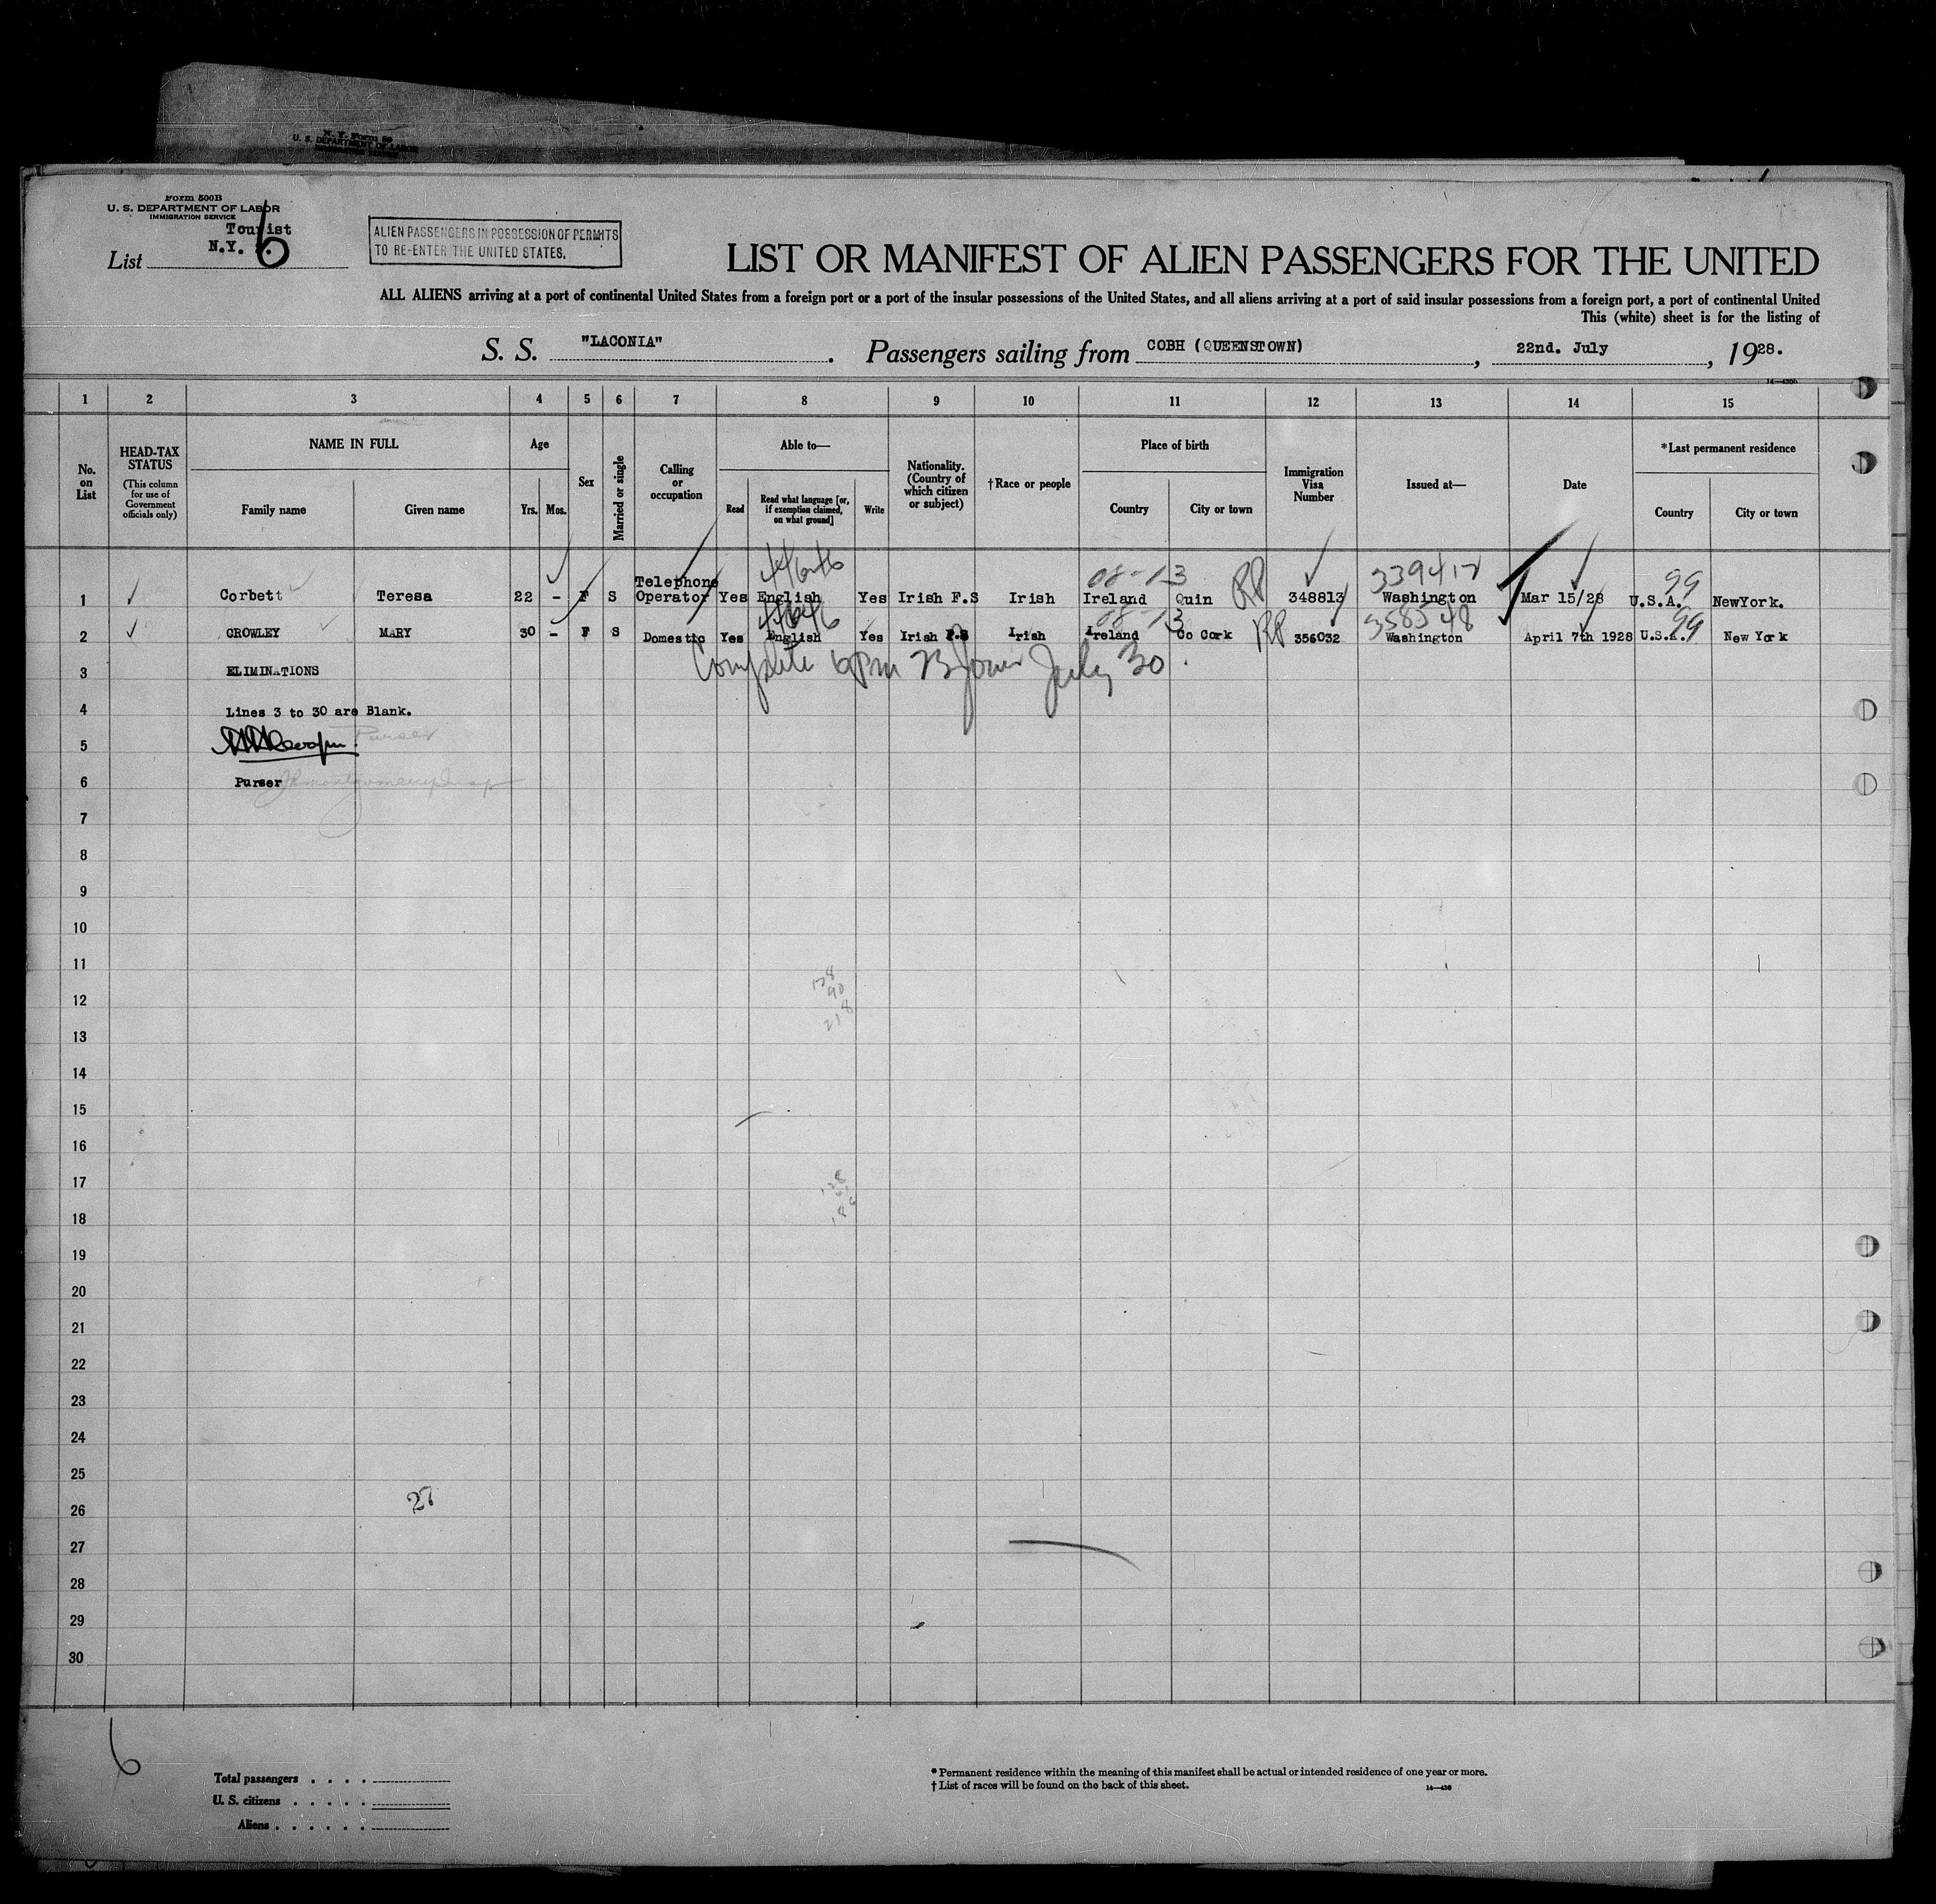 N. Y. Form 89
U. S. DEPARTMENT OF LABOR
IMMIGRATION SERVICE
Form 500B
U. S. DEPARTMENT OF LABOR
IMMIGRATION SERVICE
Tourist
List N.Y. 6
ALIEN PASSENGERS IN POSSESSION OF PERMITS
TO RE-ENTER THE UNITED STATES.
LIST OR MANIFEST OF ALIEN PASSENGERS FOR THE UNITED
ALL ALIENS arriving at a port of continental United States from a foreign port or a port of the insular possessions of the United States, and all aliens arriving at a port of said insular possessions from a foreign port, a port of continental United
This (white) sheet is for the listing of
S. S. "LACONIA" . Passengers sailing from COBH (QUEENSTOWN) , 22nd. July , 1928.
1 2 3 4 5 6 7 8 9 10 11 12 13 14 15
No. on List
HEAD-TAX STATUS (This column for use of Government officials only)
NAME IN FULL
Family name Given name
Age
Yrs. Mos.
Sex
Married or single
Calling or occupation
Able to—
Read Read what language [or, if exemption claimed, on what ground] Write
Nationality. (Country of which citizen or subject)
†Race or people
Place of birth
Country City or town
Immigration Visa Number
Issued at—
Date
*Last permanent residence
Country City or town
08-13 339412 99
1 Corbett Teresa 22 - F S Telephone Operator Yes English Yes Irish F.S Irish Ireland Quin RP 348813 Washington Mar 15/28 U.S.A. NewYork.
08-13 358548 99
2 CROWLEY MARY 30 - F S Domestic Yes English Yes Irish F.S Irish Ireland Co Cork RP 356032 Washington April 7th 1928 U.S.A. New York
Complete 6 Pm July 30.
3 ELIMINATIONS
4 Lines 3 to 30 are Blank.
5 Purser
6 Purser
7
8
9
10
11
12
13
14
15
16
17
18
19
20
21
22
23
24
25
26 27
27
28
29
30
6
Total passengers . . . .
U. S. citizens . . . . .
Aliens . . . . . .
* Permanent residence within the meaning of this manifest shall be actual or intended residence of one year or more.
† List of races will be found on the back of this sheet.